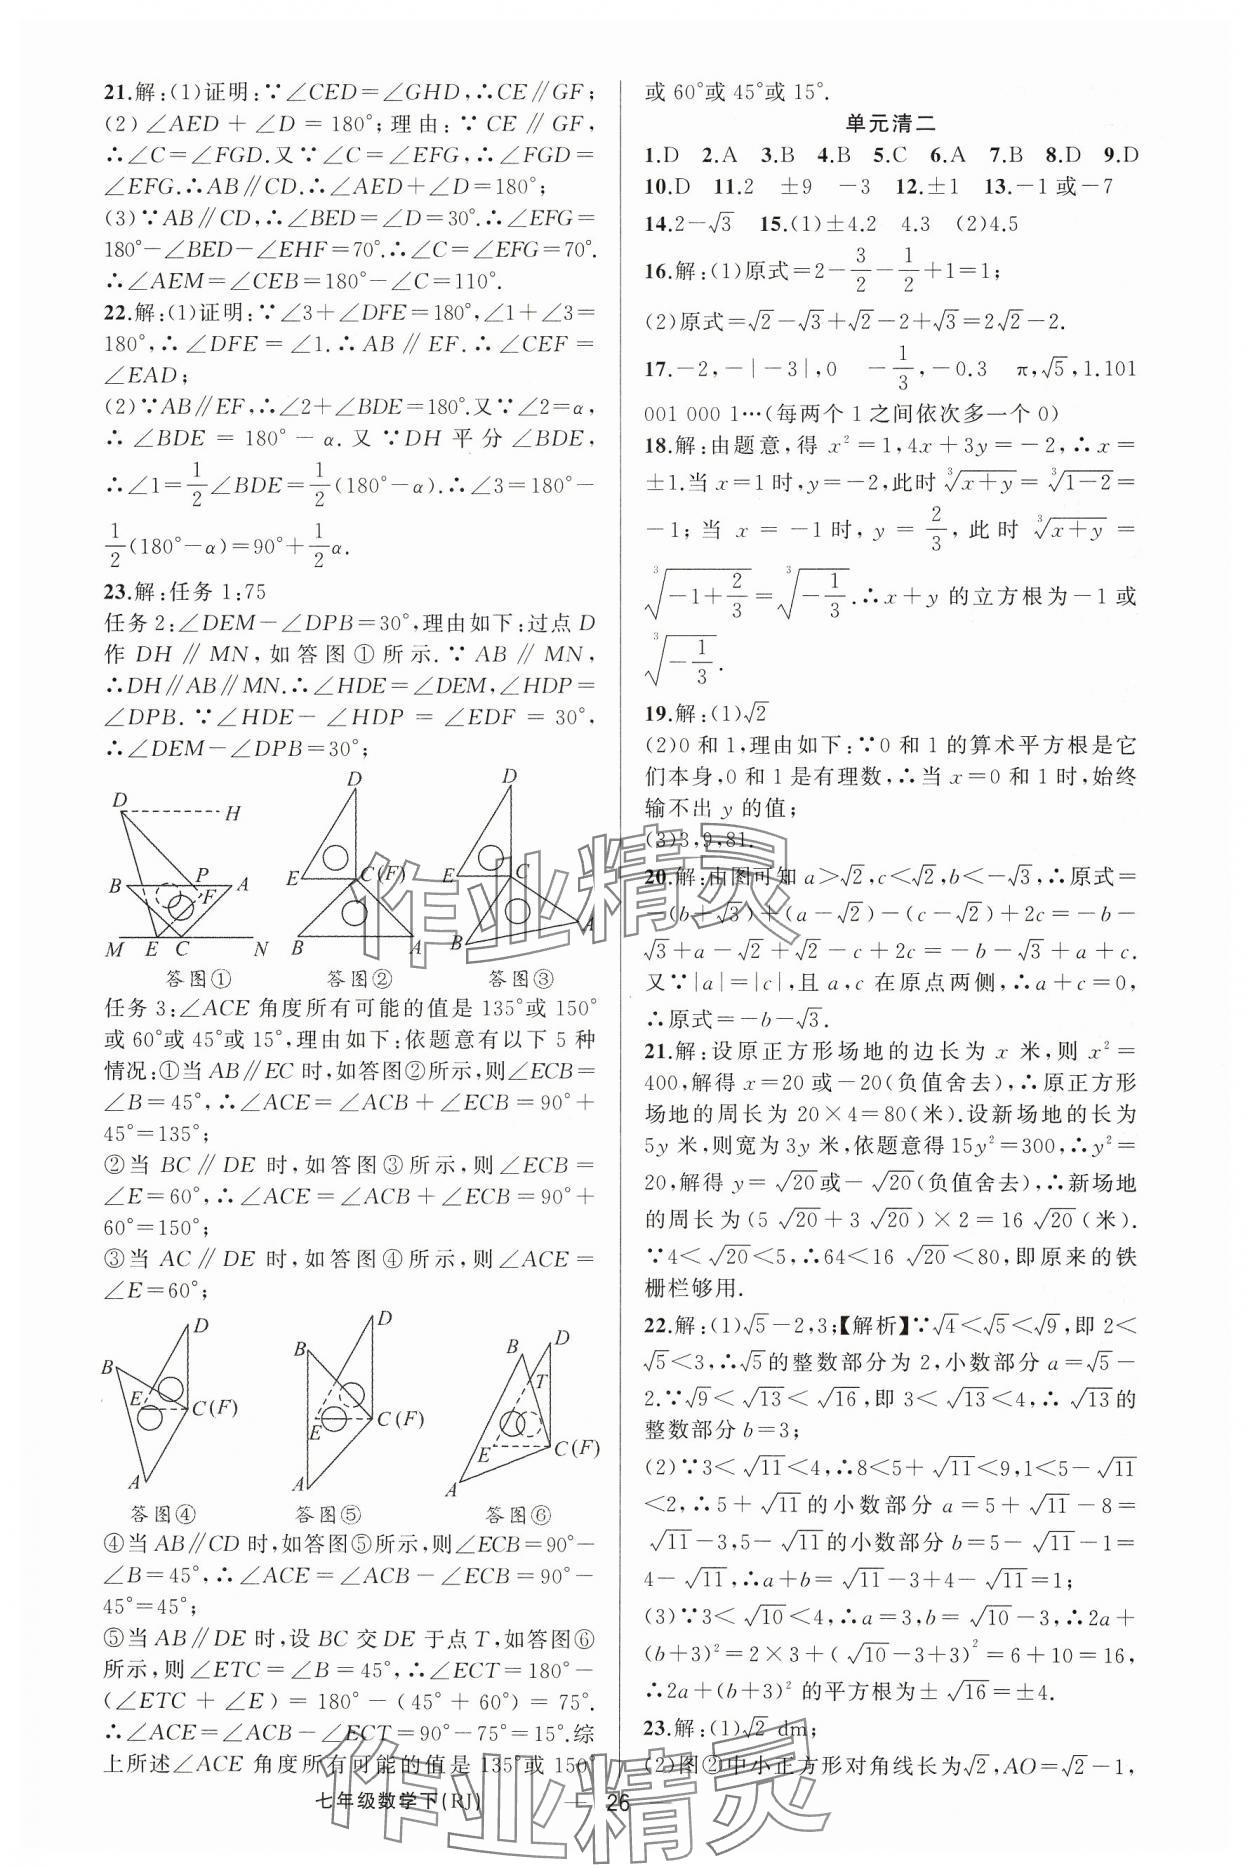 21.解:(1)证明:∵∠CED=∠GHD,∴CE∥GF;
(2)∠AED+∠D=180°;理由:∵CE∥GF,
∴∠C=∠FGD.又∵∠C=∠EFG,∴∠FGD=
∠EFG.∴AB∥CD.∴∠AED+∠D=180°;
(3)∵AB∥CD,∴∠BED=∠D=30°.∴∠EFG=
180°-∠BED-∠EHF=70°.∴∠C=∠EFG=70°.
∴∠AEM=∠CEB=180°-∠C=110°.
22.解:(1)证明:∵∠3+∠DFE=180°,∠1+∠3=
180°,∴∠DFE=∠1.∴AB∥EF.∴∠CEF=
∠EAD;
(2)∵AB∥EF,∴∠2+∠BDE=180°.又∵∠2=α,
∴∠BDE=180°-α.又∵DH平分∠BDE,
∴∠1=1/2∠BDE=1/2(180°-α).∴∠3=180°-
1/2(180°-α)=90°+1/2α.
23.解:任务1:75
任务2:∠DEM-∠DPB=30°,理由如下:过点D
作DH∥MN,如答图①所示.∵AB∥MN,
∴DH∥AB∥MN.∴∠HDE=∠DEM,∠HDP=
∠DPB.∵∠HDE-∠HDP=∠EDF=30°,
∴∠DEM-∠DPB=30°;
D H B P A M E C N
D E C(F) B A
D E C B A
答图① 答图② 答图③
任务3:∠ACE角度所有可能的值是135°或150°
或60°或45°或15°,理由如下:依题意有以下5种
情况:①当AB∥EC时,如答图②所示,则∠ECB=
∠B=45°,∴∠ACE=∠ACB+∠ECB=90°+
45°=135°;
②当BC∥DE时,如答图③所示,则∠ECB=
∠E=60°,∴∠ACE=∠ACB+∠ECB=90°+
60°=150°;
③当AC∥DE时,如答图④所示,则∠ACE=
∠E=60°;
D B E C(F) A
D B E C(F) A
D B T E C(F) A
答图④ 答图⑤ 答图⑥
④当AB∥CD时,如答图⑤所示,则∠ECB=90°-
∠B=45°,∴∠ACE=∠ACB-∠ECB=90°-
45°=45°;
⑤当AB∥DE时,设BC交DE于点T,如答图⑥
所示,则∠ETC=∠B=45°,∴∠ECT=180°-
(∠ETC+∠E)=180°-(45°+60°)=75°.
∴∠ACE=∠ACB-∠ECT=90°-75°=15°.综
上所述∠ACE角度所有可能的值是135°或150°
或60°或45°或15°.
单元清二
1.D 2.A 3.B 4.B 5.C 6.A 7.B 8.D 9.D
10.D 11.2 ±9 -3 12.±1 13.-1或-7
14.2-√3 15.(1)±4.2 4.3 (2)4.5
16.解:(1)原式=2-3/2-1/2+1=1;
(2)原式=√2-√3+√2-2+√3=2√2-2.
17.-2,-|-3|,0 -1/3,-0.3 π,√5,1.101
001 000 1…(每两个1之间依次多一个0)
18.解:由题意,得x²=1,4x+3y=-2,∴x=
±1.当x=1时,y=-2,此时∛(x+y)=∛(1-2)=
-1;当x=-1时,y=2/3,此时∛(x+y)=
∛(-1+2/3)=∛(-1/3).∴x+y的立方根为-1或
∛(-1/3).
19.解:(1)√2
(2)0和1,理由如下:∵0和1的算术平方根是它
们本身,0和1是有理数,∴当x=0和1时,始终
输不出y的值;
(3)3,9,81.
20.解:由图可知a>√2,c<√2,b<-√3,∴原式=
-(b+√3)+(a-√2)-(c-√2)+2c=-b-
√3+a-√2+√2-c+2c=-b-√3+a+c.
又∵|a|=|c|,且a,c在原点两侧,∴a+c=0,
∴原式=-b-√3.
21.解:设原正方形场地的边长为x米,则x²=
400,解得x=20或-20(负值舍去),∴原正方形
场地的周长为20×4=80(米).设新场地的长为
5y米,则宽为3y米,依题意得15y²=300,∴y²=
20,解得y=√20或-√20(负值舍去),∴新场地
的周长为(5√20+3√20)×2=16√20(米).
∵4<√20<5,∴64<16√20<80,即原来的铁
栅栏够用.
22.解:(1)√5-2,3;【解析】∵√4<√5<√9,即2<
√5<3,∴√5的整数部分为2,小数部分a=√5-
2.∵√9<√13<√16,即3<√13<4,∴√13的
整数部分b=3;
(2)∵3<√11<4,∴8<5+√11<9,1<5-√11
<2,∴5+√11的小数部分a=5+√11-8=
√11-3,5-√11的小数部分b=5-√11-1=
4-√11,∴a+b=√11-3+4-√11=1;
(3)∵3<√10<4,∴a=3,b=√10-3,∴2a+
(b+3)²=2×3+(√10-3+3)²=6+10=16,
∴2a+(b+3)²的平方根为±√16=±4.
23.解:(1)√2 dm;
(2)图②中小正方形对角线长为√2,AO=√2-1,
七年级数学下(RJ) — 26 —
作业精灵
作业精灵